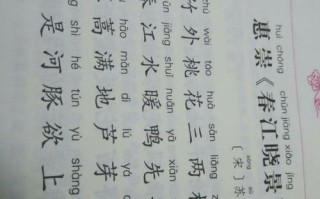 huì chóng chūn jiāng xiǎo jǐng
惠崇《春江晓景
〔宋〕苏
wài táo huā sān liǎng
竹外桃花三两
jiāng shuǐ nuǎn yā xiān
春江水暖鸭先
hāo mǎn dì lú yá
蒿满地芦芽
shì hé tún yù shàng
是河豚欲上